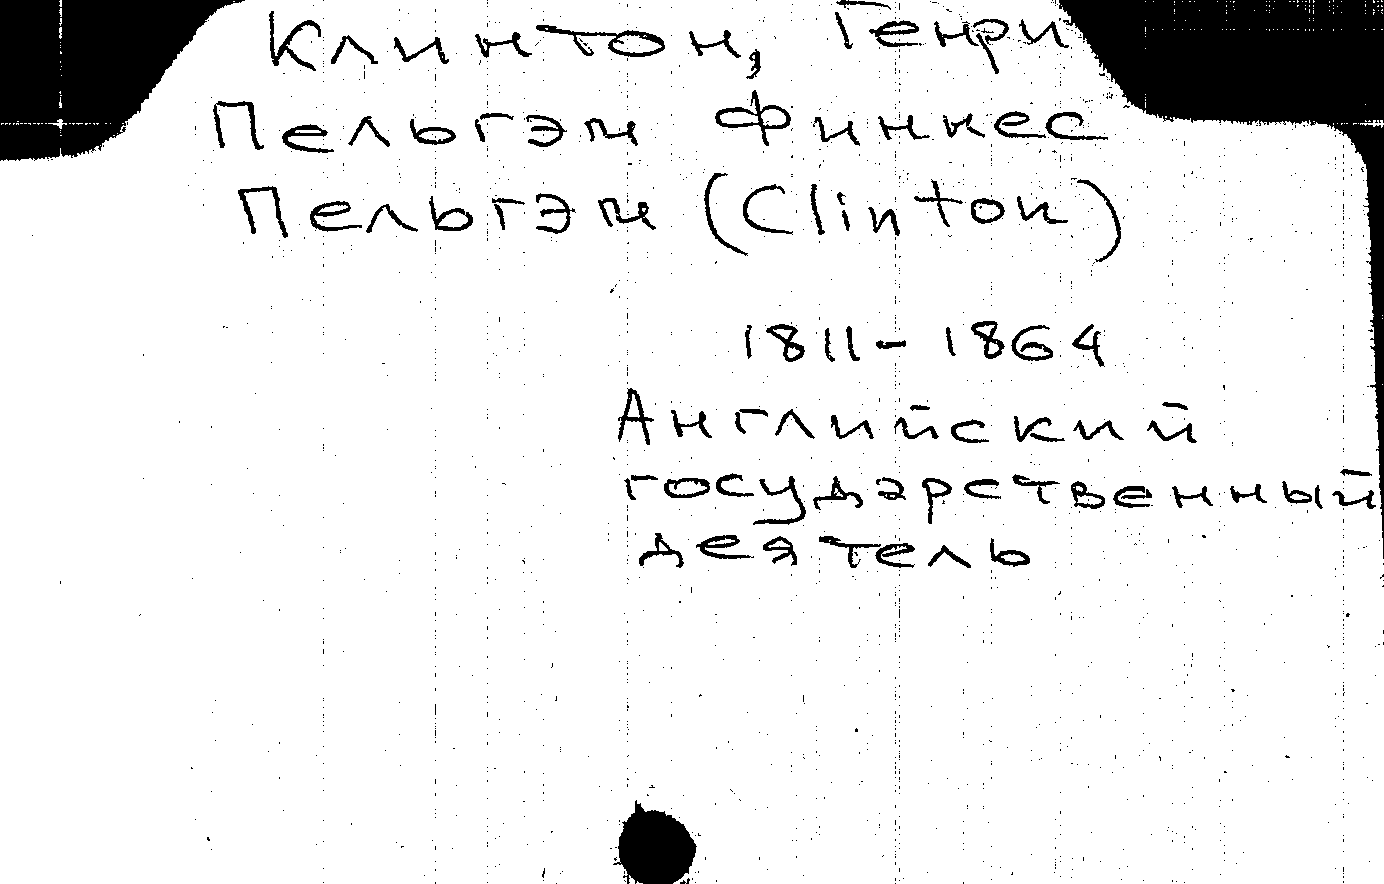 Клинтон, Генри
Пельгэм Финкес
Пельгэм (Clinton)
1811-1864
Английский
государственный
деятель